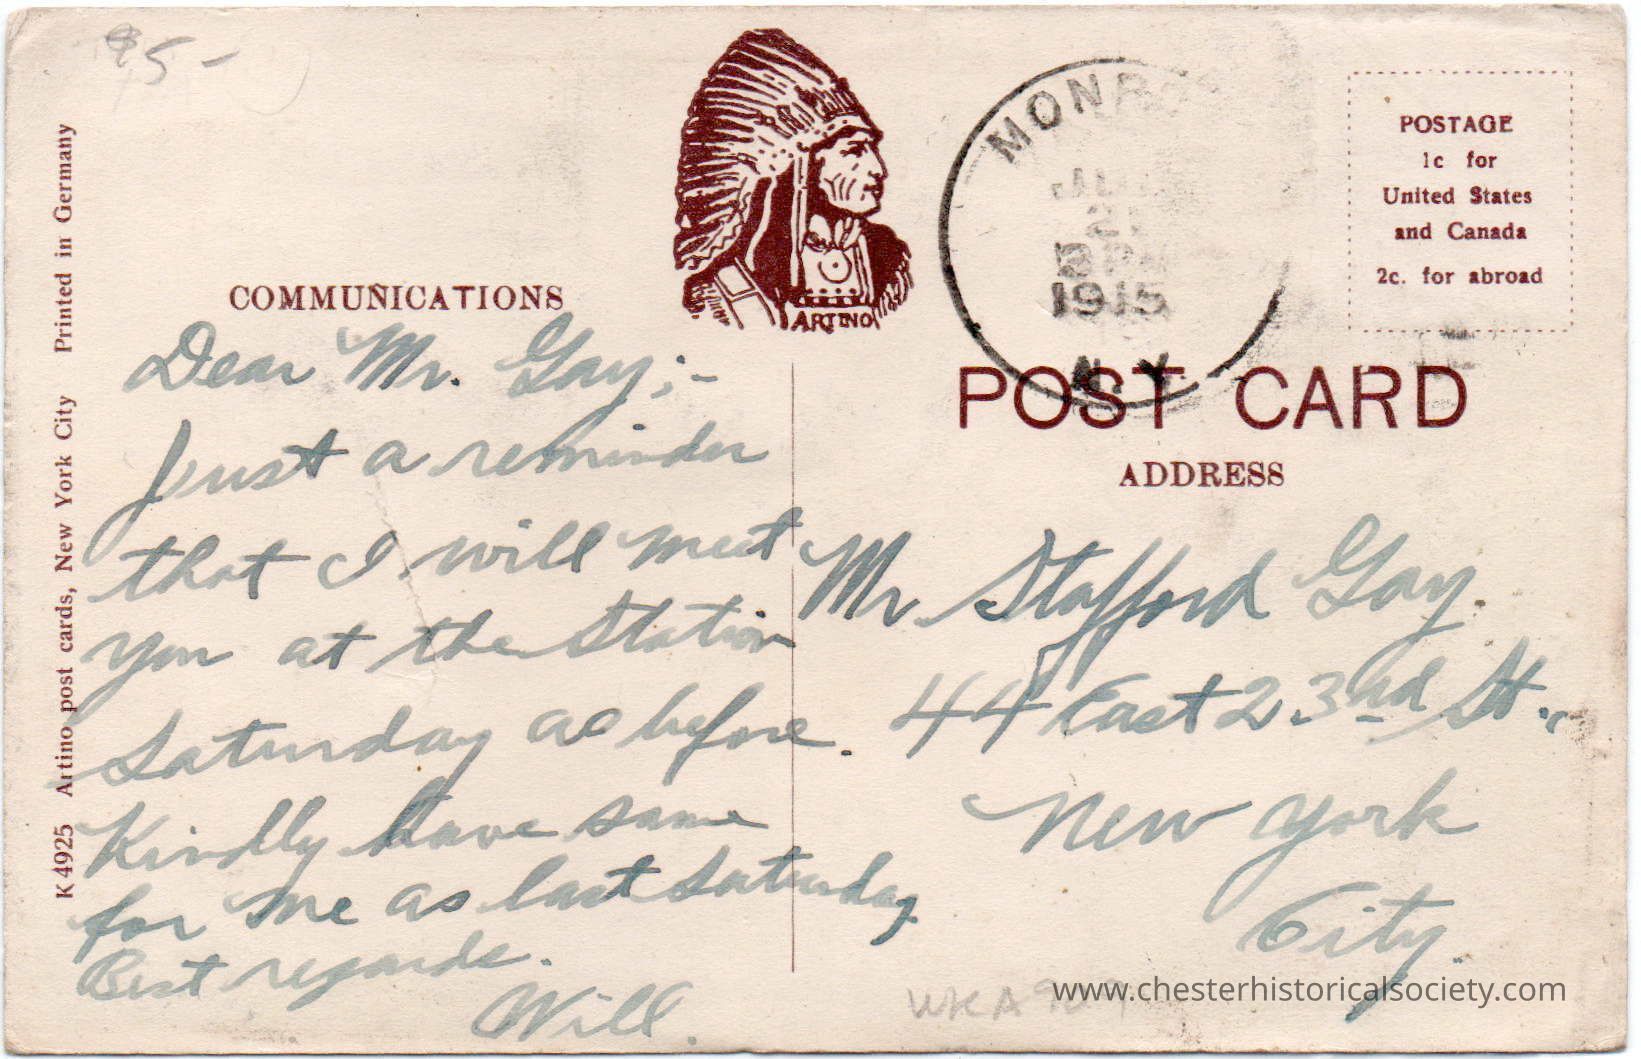 $5-
K4925 Artino post cards, New York City Printed in Germany
COMMUNICATIONS
Dear Mr. Gay;-
Just a reminder
that I will meet
you at the Station
Saturday as before.
Kindly have same
for me as last Saturday
Best regards.
Will.
ARTINO
MONR
N.Y.
1915
POSTAGE
1c for
United States
and Canada
2c. for abroad
POST CARD
ADDRESS
Mr. Stafford Gay.
44 East 23rd St.
New York
City.
www.chesterhistoricalsociety.com